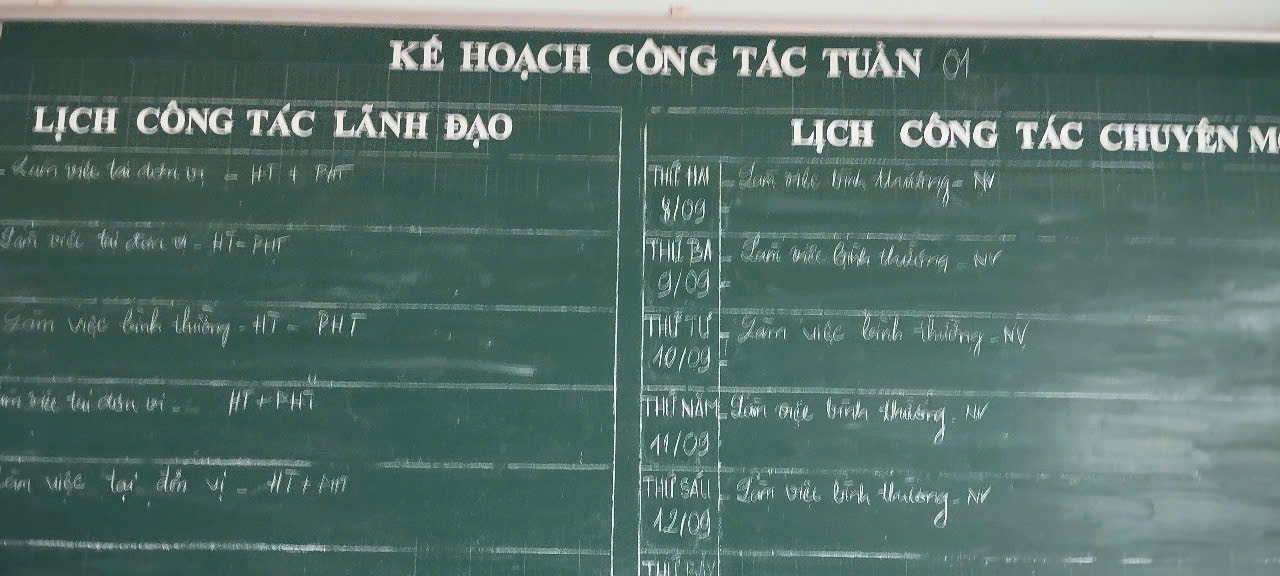 KẾ HOẠCH CÔNG TÁC TUẦN 01
LỊCH CÔNG TÁC LÃNH ĐẠO
- Làm việc tại đơn vị = HT + PHT
Làm việc tại đơn vị - HT - PHT
Làm việc bình thường - HT - PHT
việc tại đơn vị - HT + PHT
Làm việc tại đơn vị - HT + PHT
LỊCH CÔNG TÁC CHUYÊN M
THỨ HAI - Làm việc bình thường - NV
8/09
THỨ BA - Làm việc bình thường - NV
9/09
THỨ TƯ - Làm việc bình thường - NV
10/09
THỨ NĂM - Làm việc bình thường - NV
11/09
THỨ SÁU - Làm việc bình thường - NV
12/09
THỨ BẢY